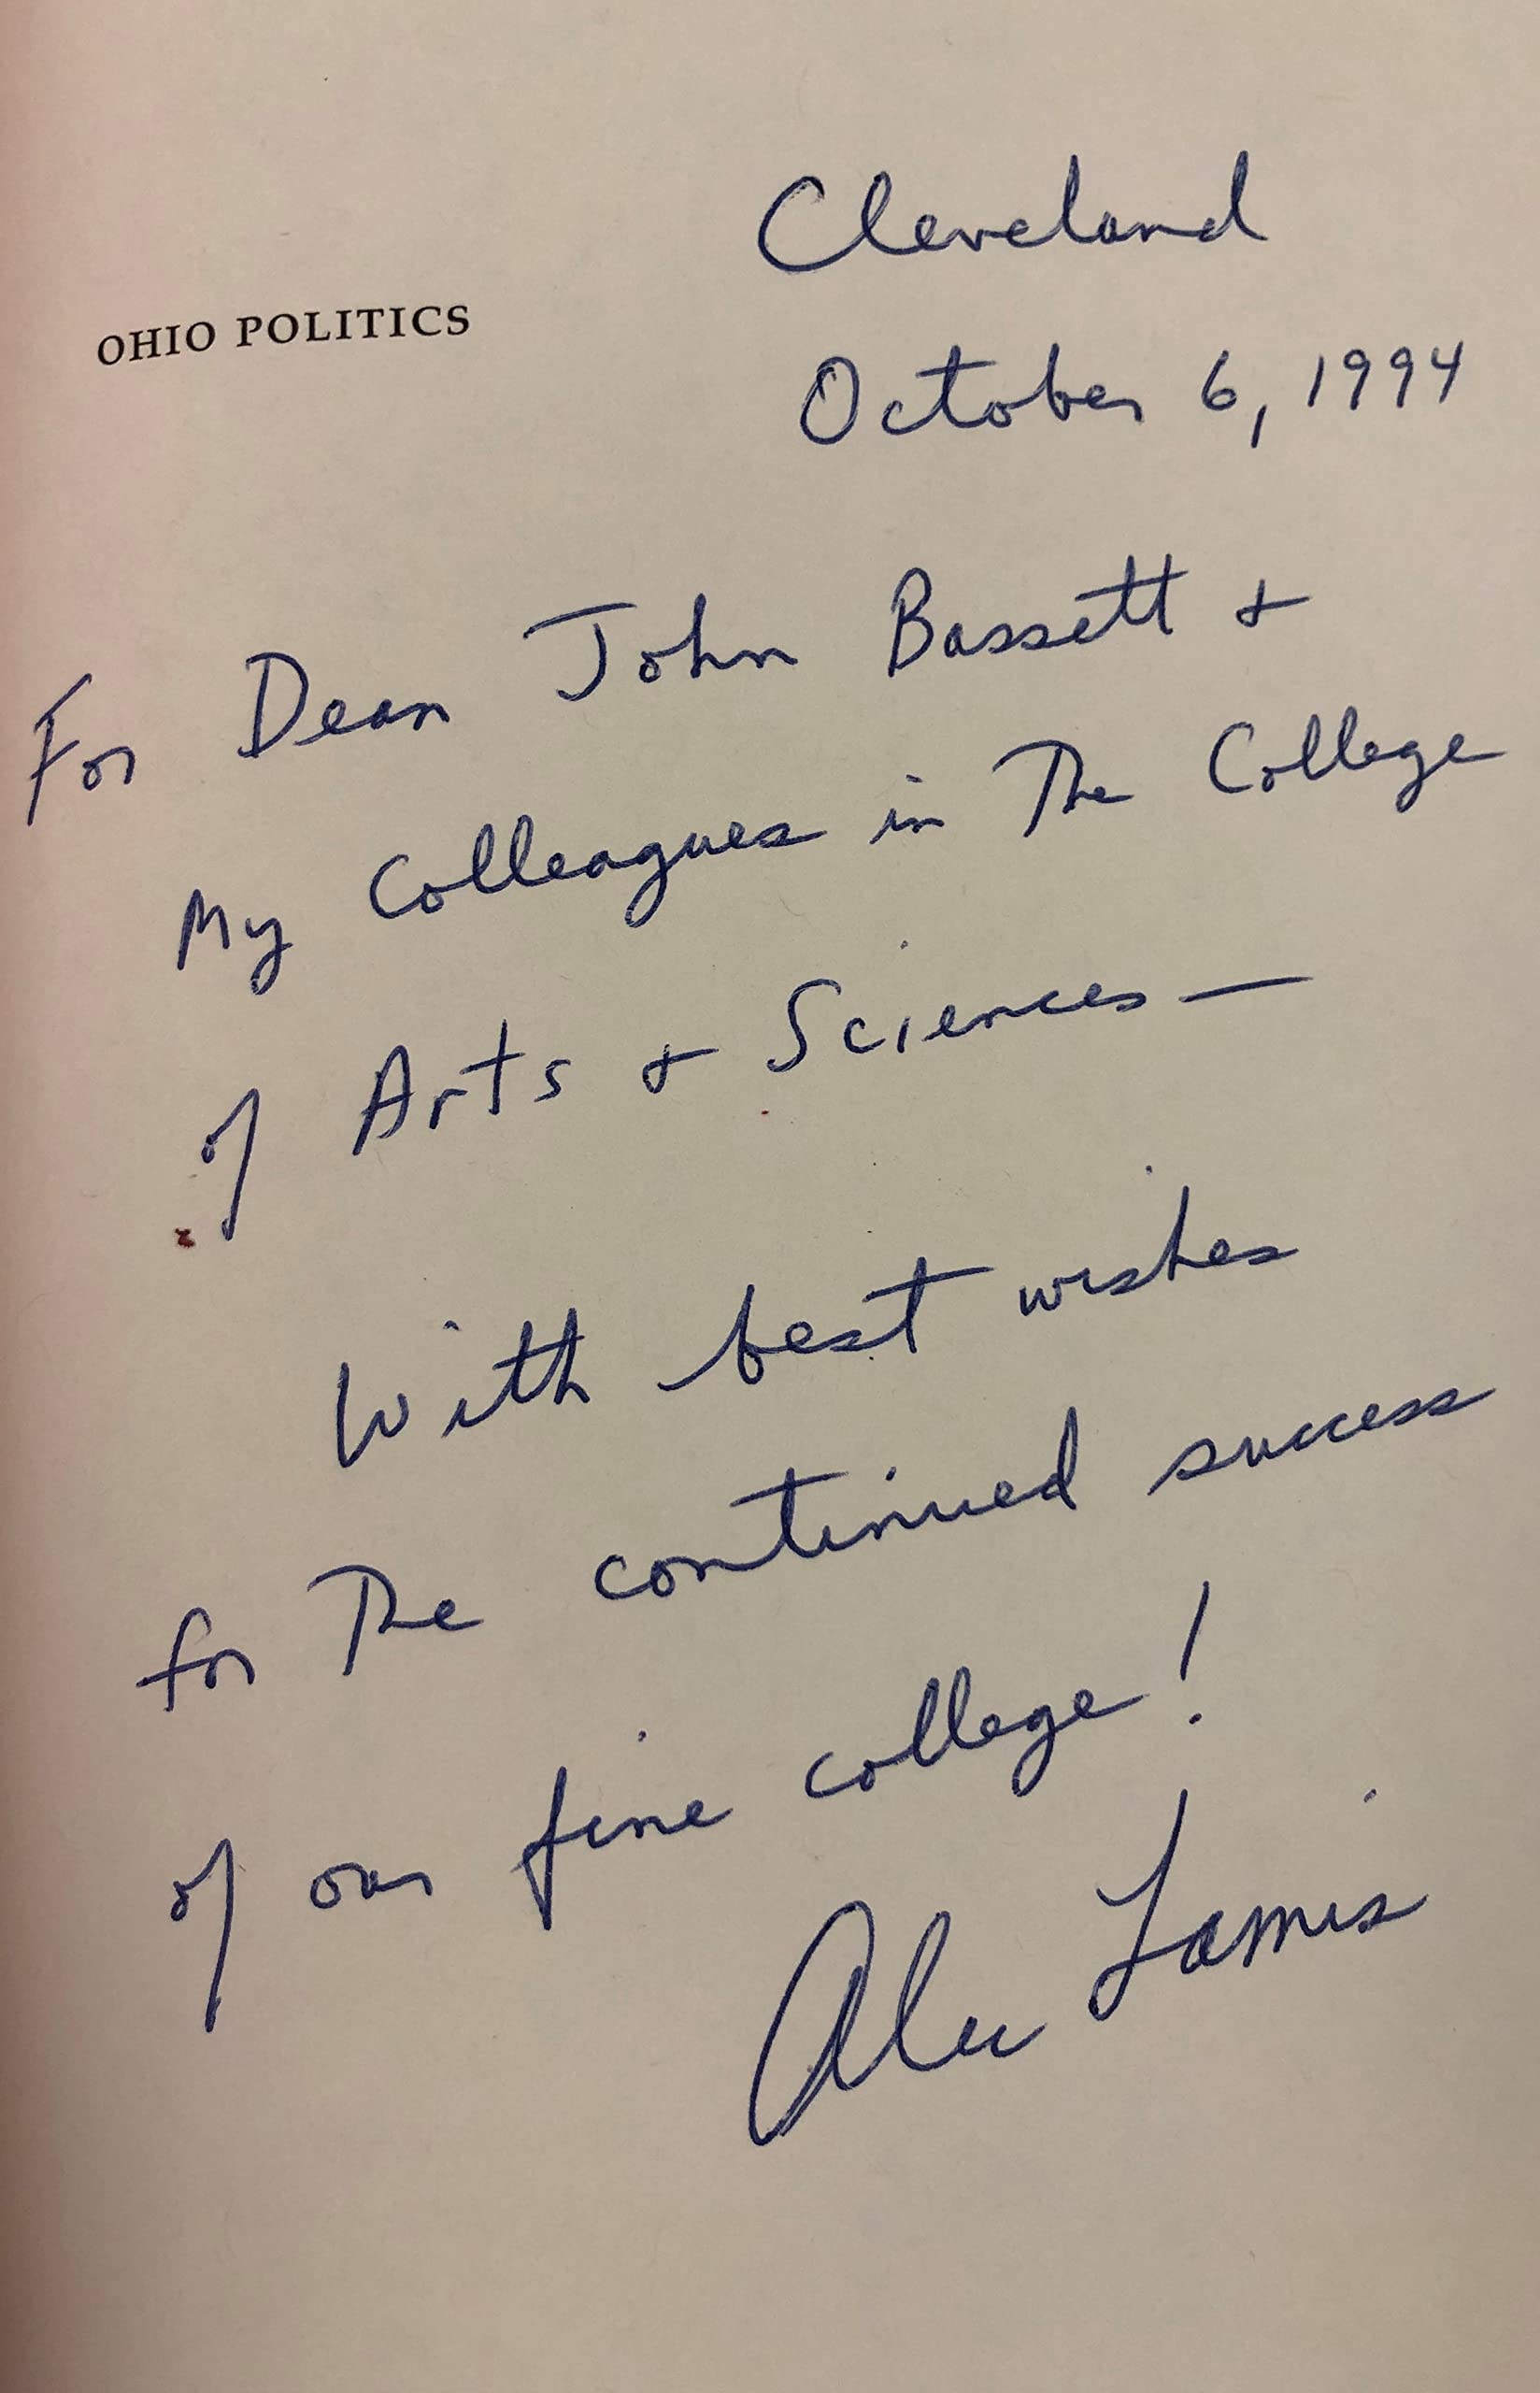 Cleveland
OHIO POLITICS
October 6, 1994
For Dean John Bassett &
My Colleagues in The College
of Arts & Sciences—
With best wishes
for The continued success
of our fine college!
Alec Lamis